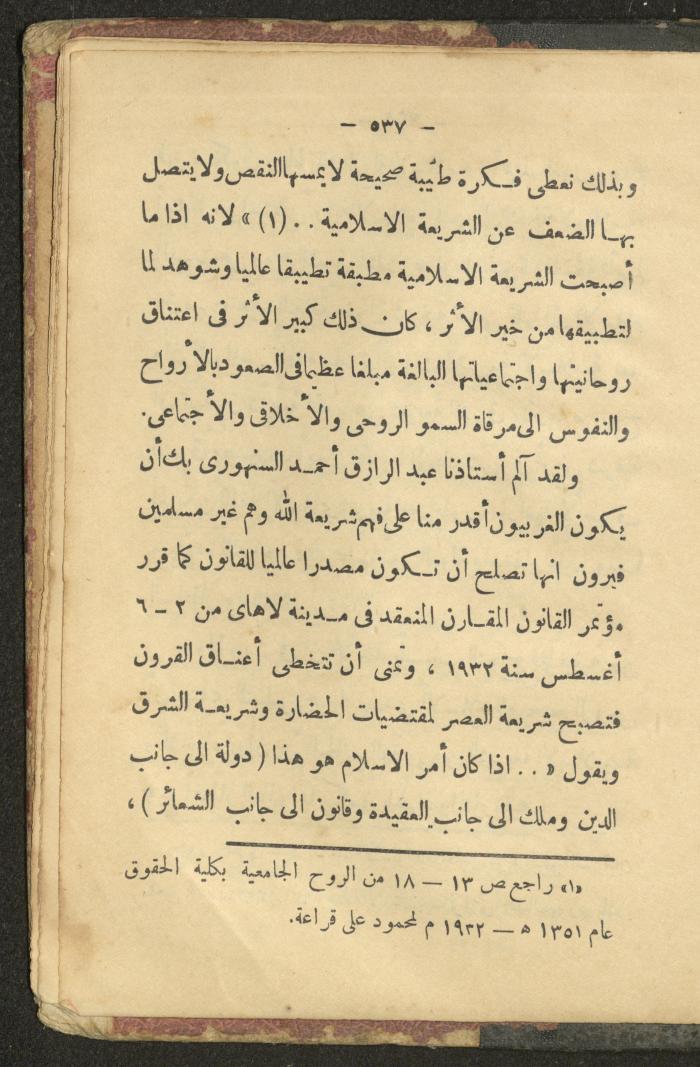 — ٥٣٧ —
وبذلك نعطى فكرة طيّبة صحيحة لايمسها النقص ولايتصل
بها الضعف عن الشريعة الاسلامية . . (١) » لانه اذا ما
أصبحت الشريعة الاسلامية مطبقة تطبيقا عالميا وشوهد لما
لتطبيقها من خير الأثر ، كان ذلك كبير الأثر فى اعتناق
روحانيتها واجتماعياتها البالغة مبلغا عظيما فى الصعود بالأرواح
والنفوس الى مرقاة السمو الروحى والأخلاقى والأجتماعى.
ولقد آلم أستاذنا عبد الرازق أحمد السنهورى بك أن
يكون الغربيون أقدر منا على فهم شريعة الله وهم غير مسلمين
فيرون انها تصلح أن تكون مصدرا عالميا للقانون كما قرر
مؤتمر القانون المقارن المنعقد فى مدينة لاهاى من ٢ — ٦
أغسطس سنة ١٩٣٢ ، وتمنى أن تتخطى أعناق القرون
فتصبح شريعة العصر لمقتضيات الحضارة وشريعة الشرق
ويقول « . . اذا كان أمر الاسلام هو هذا ( دولة الى جانب
الدين وملك الى جانب العقيدة وقانون الى جانب الشعائر ) ،
«١» راجع ص ١٣ — ١٨ من الروح الجامعية بكلية الحقوق
عام ١٣٥١ ه — ١٩٣٢ م لمحمود على قراعة.